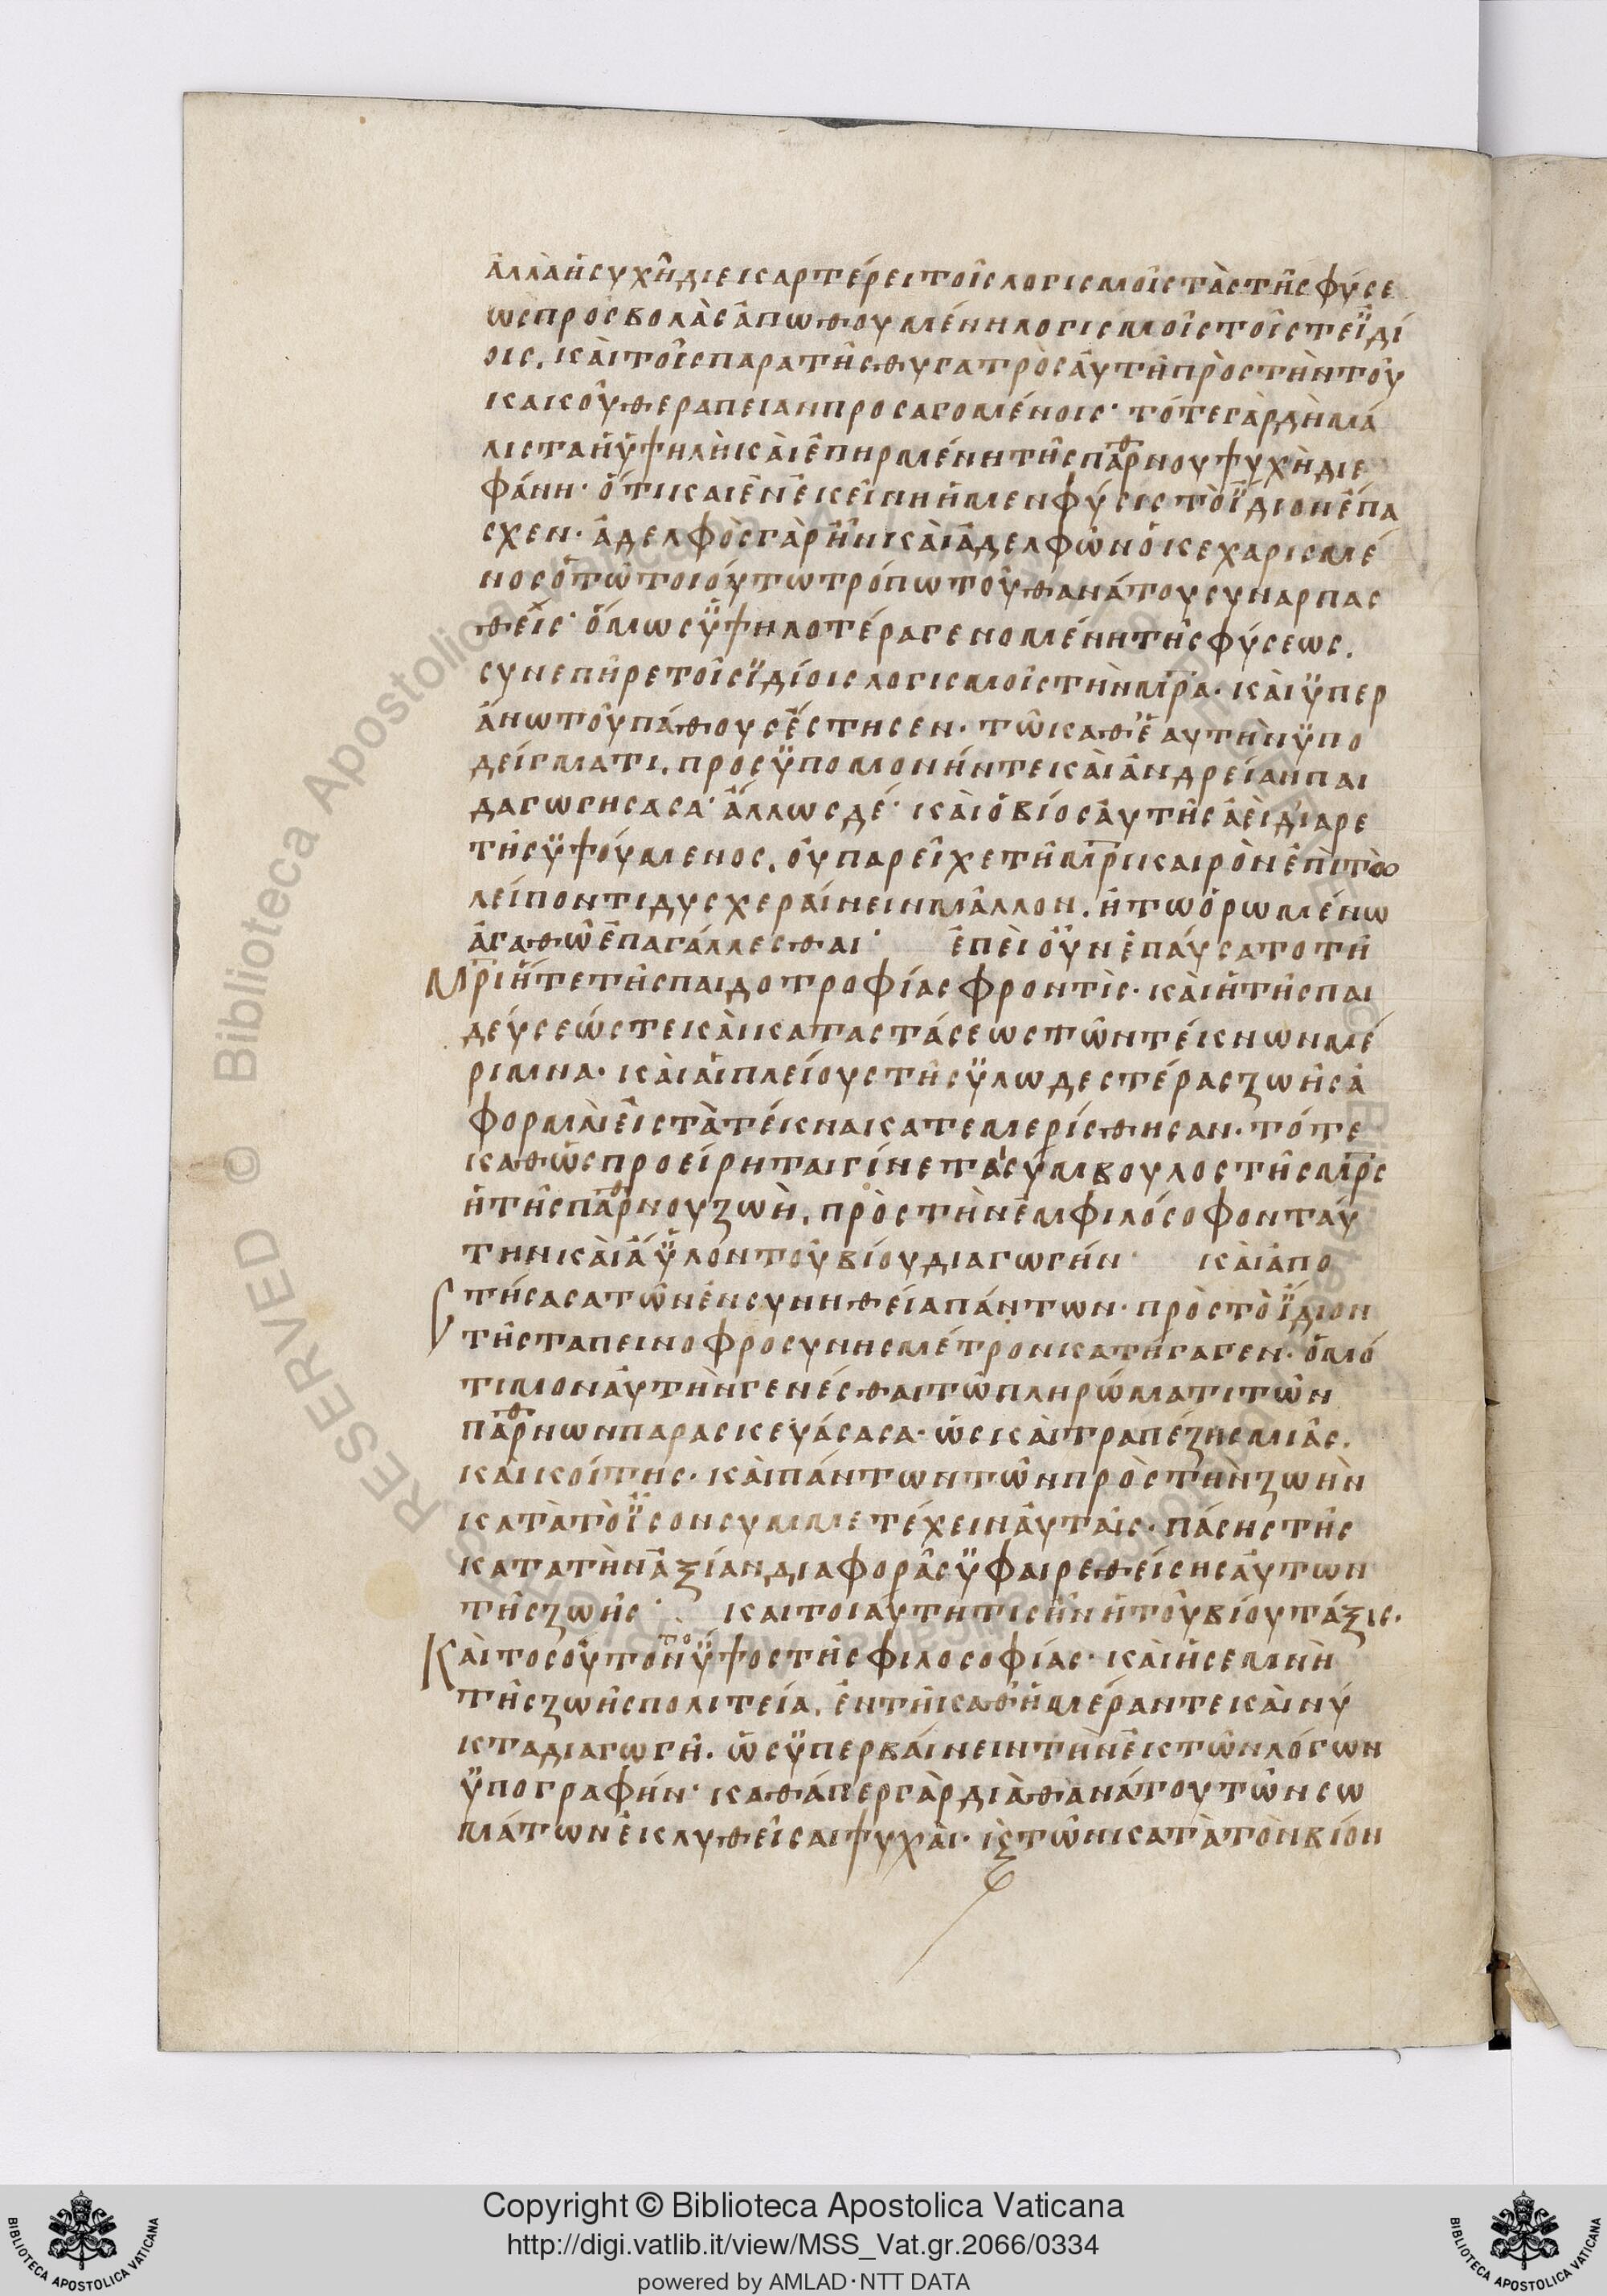 ἀλλὰ ἡσυχῆ διεκαρτέρει τοῖς λογισμοῖς τὰς τῆς φύσε
ως προσβολὰς ἀπωθουμένη λογισμοῖς τοῖς τε ἰδί
οις, καὶ τοῖς παρα τῆς θυγατρὸς ἀυτῆ πρὸς τὴν τοῦ
κακοῦ θεραπειαν προσαγομένοις· τότε γὰρ δὴ μά
λιστα ἡ ὑψηλὴ καὶ ἐπηρμένη τῆς παρ̅θνου ψυχὴ διε
φάνη· ὅτι και ἐν ἐκείνη ἡ μεν φύσις τὸ ἴδιον ἔπα
σχεν· ἀδελφὸς γὰρ ἦν καὶ ἀδελφῶν ὁ κεχαρισμέ
νοσ ὅτω τοιούτω τρόπω τοῦ θανάτου συναρπας
θείς· ὅμως ὑψηλοτέρα γενομένη τῆς φύσεως.
συνεπῆρε τοῖς ἰδίοις λογισμοῖς τὴν μρ̅α· καὶ ὑπερ
άνω τοῦ πάθους ἔστησεν· τῶ καθ' ἑαυτὴν ὑπο
δείγματι, προς ὑπομονήν τε καὶ ἀνδρείαν παι
δαγωγησασα· ἄλλως δέ· καὶ ὁ βίος ἀυτῆς ἀεὶ δι' αρε
τῆς ὑψούμενος, οὐ παρεῖχε τῆ μρ̅ι καιρὸν ἐπὶ τῶ
λείποντι δυσχεραίνειν μᾶλλον, ἢ τω ὁρωμένω
ἀγαθῶ ἐπαγάλλεσθαι· ἐπεὶ οὖν ἐπάυσατο τῆ
Μρ̅ι ἥ τε τῆς παιδοτροφίας φροντὶς· καὶ ἡ τῆς παι
δεύσεώς τε καὶ καταστάσεως τῶν τέκνων μέ
ριμνα· καὶ αἱ πλείους τῆς ὑλωδεστέρας ζωῆς ἀ
φορμὰι εἰς τὰ τέκνα κατεμερίσθησαν· τότε
καθὼς προείρηται γίνεται σύμβουλος τῆς μρ̅ς
ἡ τῆς παρ̅θνου ζωὴ, πρὸς τὴν ἐμφιλόσοφον ταύ
την καὶ ἄϋλον τοῦ βίου διαγωγήν· καὶ ἀπο
Στήσασα τῶν ἐν συνηθεία πάντων· πρὸς τὸ ἴδιον
τῆς ταπεινοφροσυνης μέτρον κατήγαγεν· ὁμό
τιμον ἀυτὴν γενέσθαι τῶ πληρώματι τῶν
παρ̅θνων παρασκευάσασα· ὡς καὶ τραπέζης μιᾶς,
καὶ κοίτης· καὶ πάντων τῶν πρὸς τὴν ζωὴν
κατὰ τὸ ἴσον συμμετέχειν ἀυταῖς· πάσης τῆς
κατα τὴν ἀξίαν διαφορᾶς ὑφαιρεθείσης ἀυτων
τῆς ζωῆς· και τοιαύτη τις ἦν ἡ τοῦ βίου τάξις·
Καὶ τοσοῦτον το ὕψος τῆς φιλοσοφίας· καὶ ἡ σεμνὴ
τῆς ζωῆς πολιτεία, ἐν τῆ καθ' ἡμέραν τε καὶ νύ
κτα διαγωγῆ. ὡς ὑπερβάινειν τὴν ἐκ τῶν λόγων
ὑπογραφήν· καθάπερ γὰρ διὰ θανάτου τῶν σω
μάτων ἐκλυθεῖσαι ψυχὰι· κ̀ τῶν κατὰ τὸν βίον
RESERVED © Biblioteca Apostolica Vaticana
Copyright © Biblioteca Apostolica Vaticana
http://digi.vatlib.it/view/MSS_Vat.gr.2066/0334
powered by AMLAD·NTT DATA
BIBLIOTECA APOSTOLICA VATICANA
BIBLIOTECA APOSTOLICA VATICANA